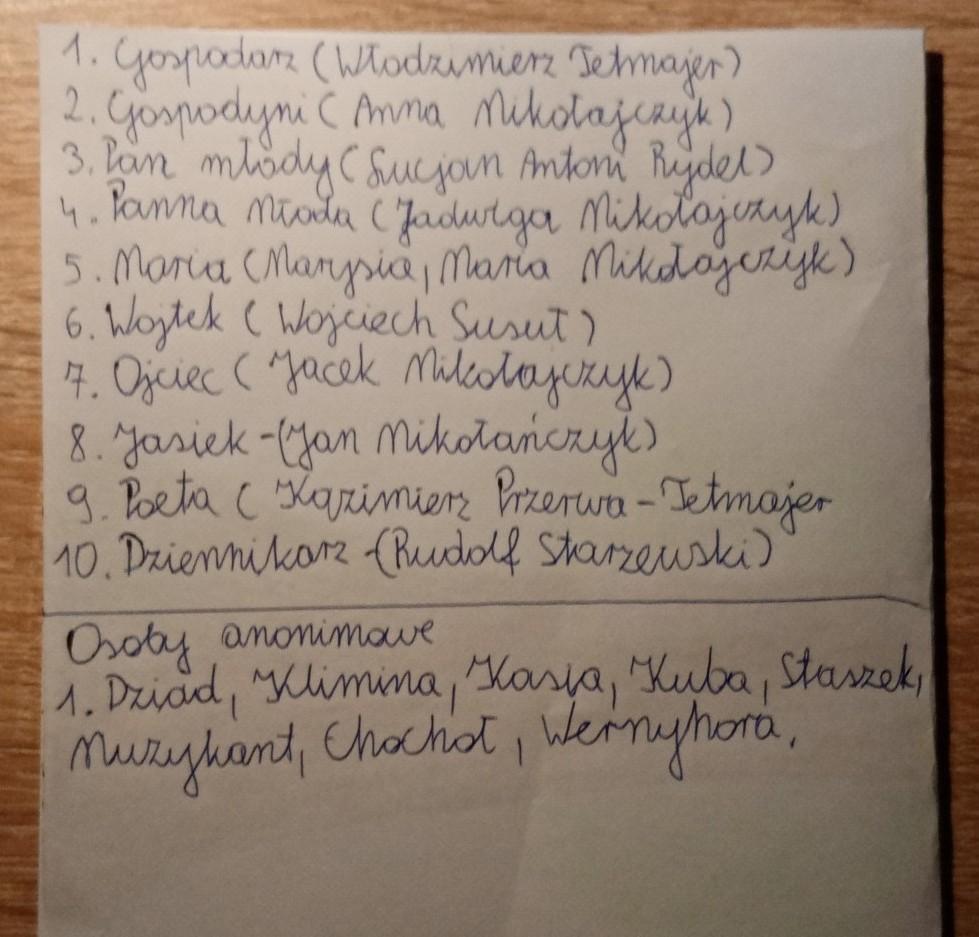 1. Gospodarz (Włodzimierz Tetmajer)
2. Gospodyni (Anna Mikołajczyk)
3. Pan młody (Lucjan Antoni Rydel)
4. Panna Młoda (Jadwiga Mikołajczyk)
5. Maria (Marysia, Maria Mikołajczyk)
6. Wojtek (Wojciech Susuł)
7. Ojciec (Jacek Mikołajczyk)
8. Jasiek - (Jan Mikołańczyk)
9. Poeta (Kazimierz Przerwa - Tetmajer
10. Dziennikarz - (Rudolf Starzewski)
Osoby anonimowe
1. Dziad, Klimina, Kasia, Kuba, Staszek,
Muzykant, Chochoł, Wernyhora,